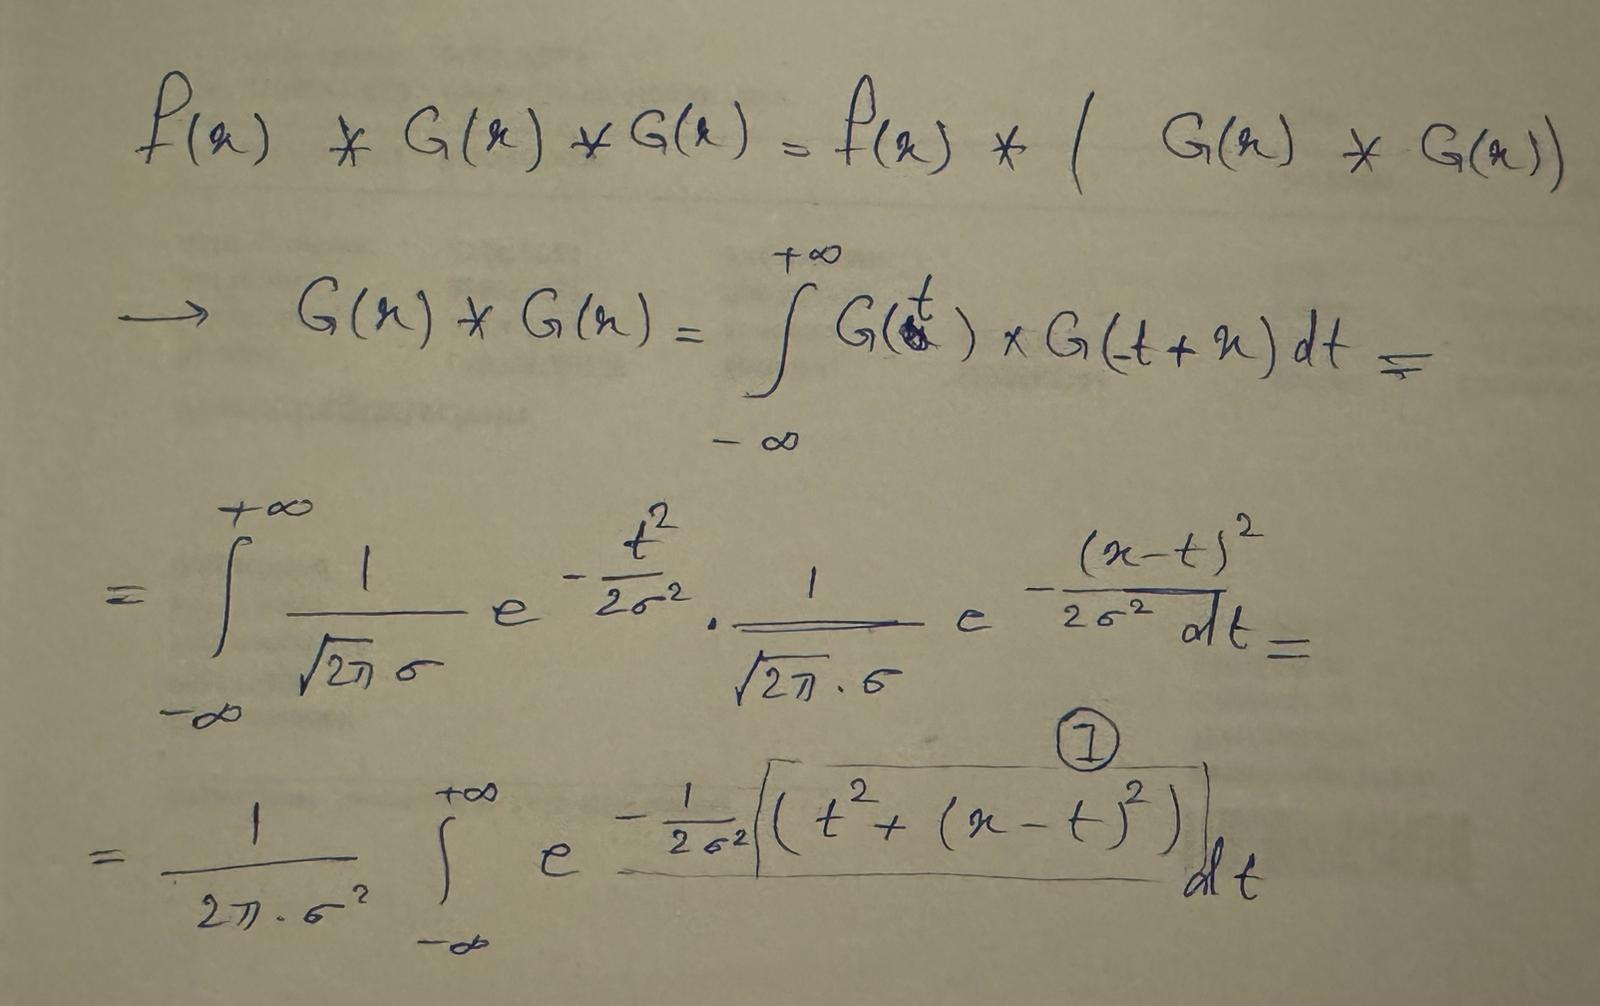 f(x) * G(x) * G(x) = f(x) * ( G(x) * G(x))
→ G(x) * G(x) = ∫_{-∞}^{+∞} G(t) × G(-t + x) dt =
= ∫_{-∞}^{+∞} \frac{1}{\sqrt{2π} σ} e^{-\frac{t^2}{2σ^2}} . \frac{1}{\sqrt{2π} . σ} e^{-\frac{(x-t)^2}{2σ^2}} dt =
①
= \frac{1}{2π . σ^2} ∫_{-∞}^{+∞} e^{-\frac{1}{2σ^2} (t^2 + (x - t)^2)} dt